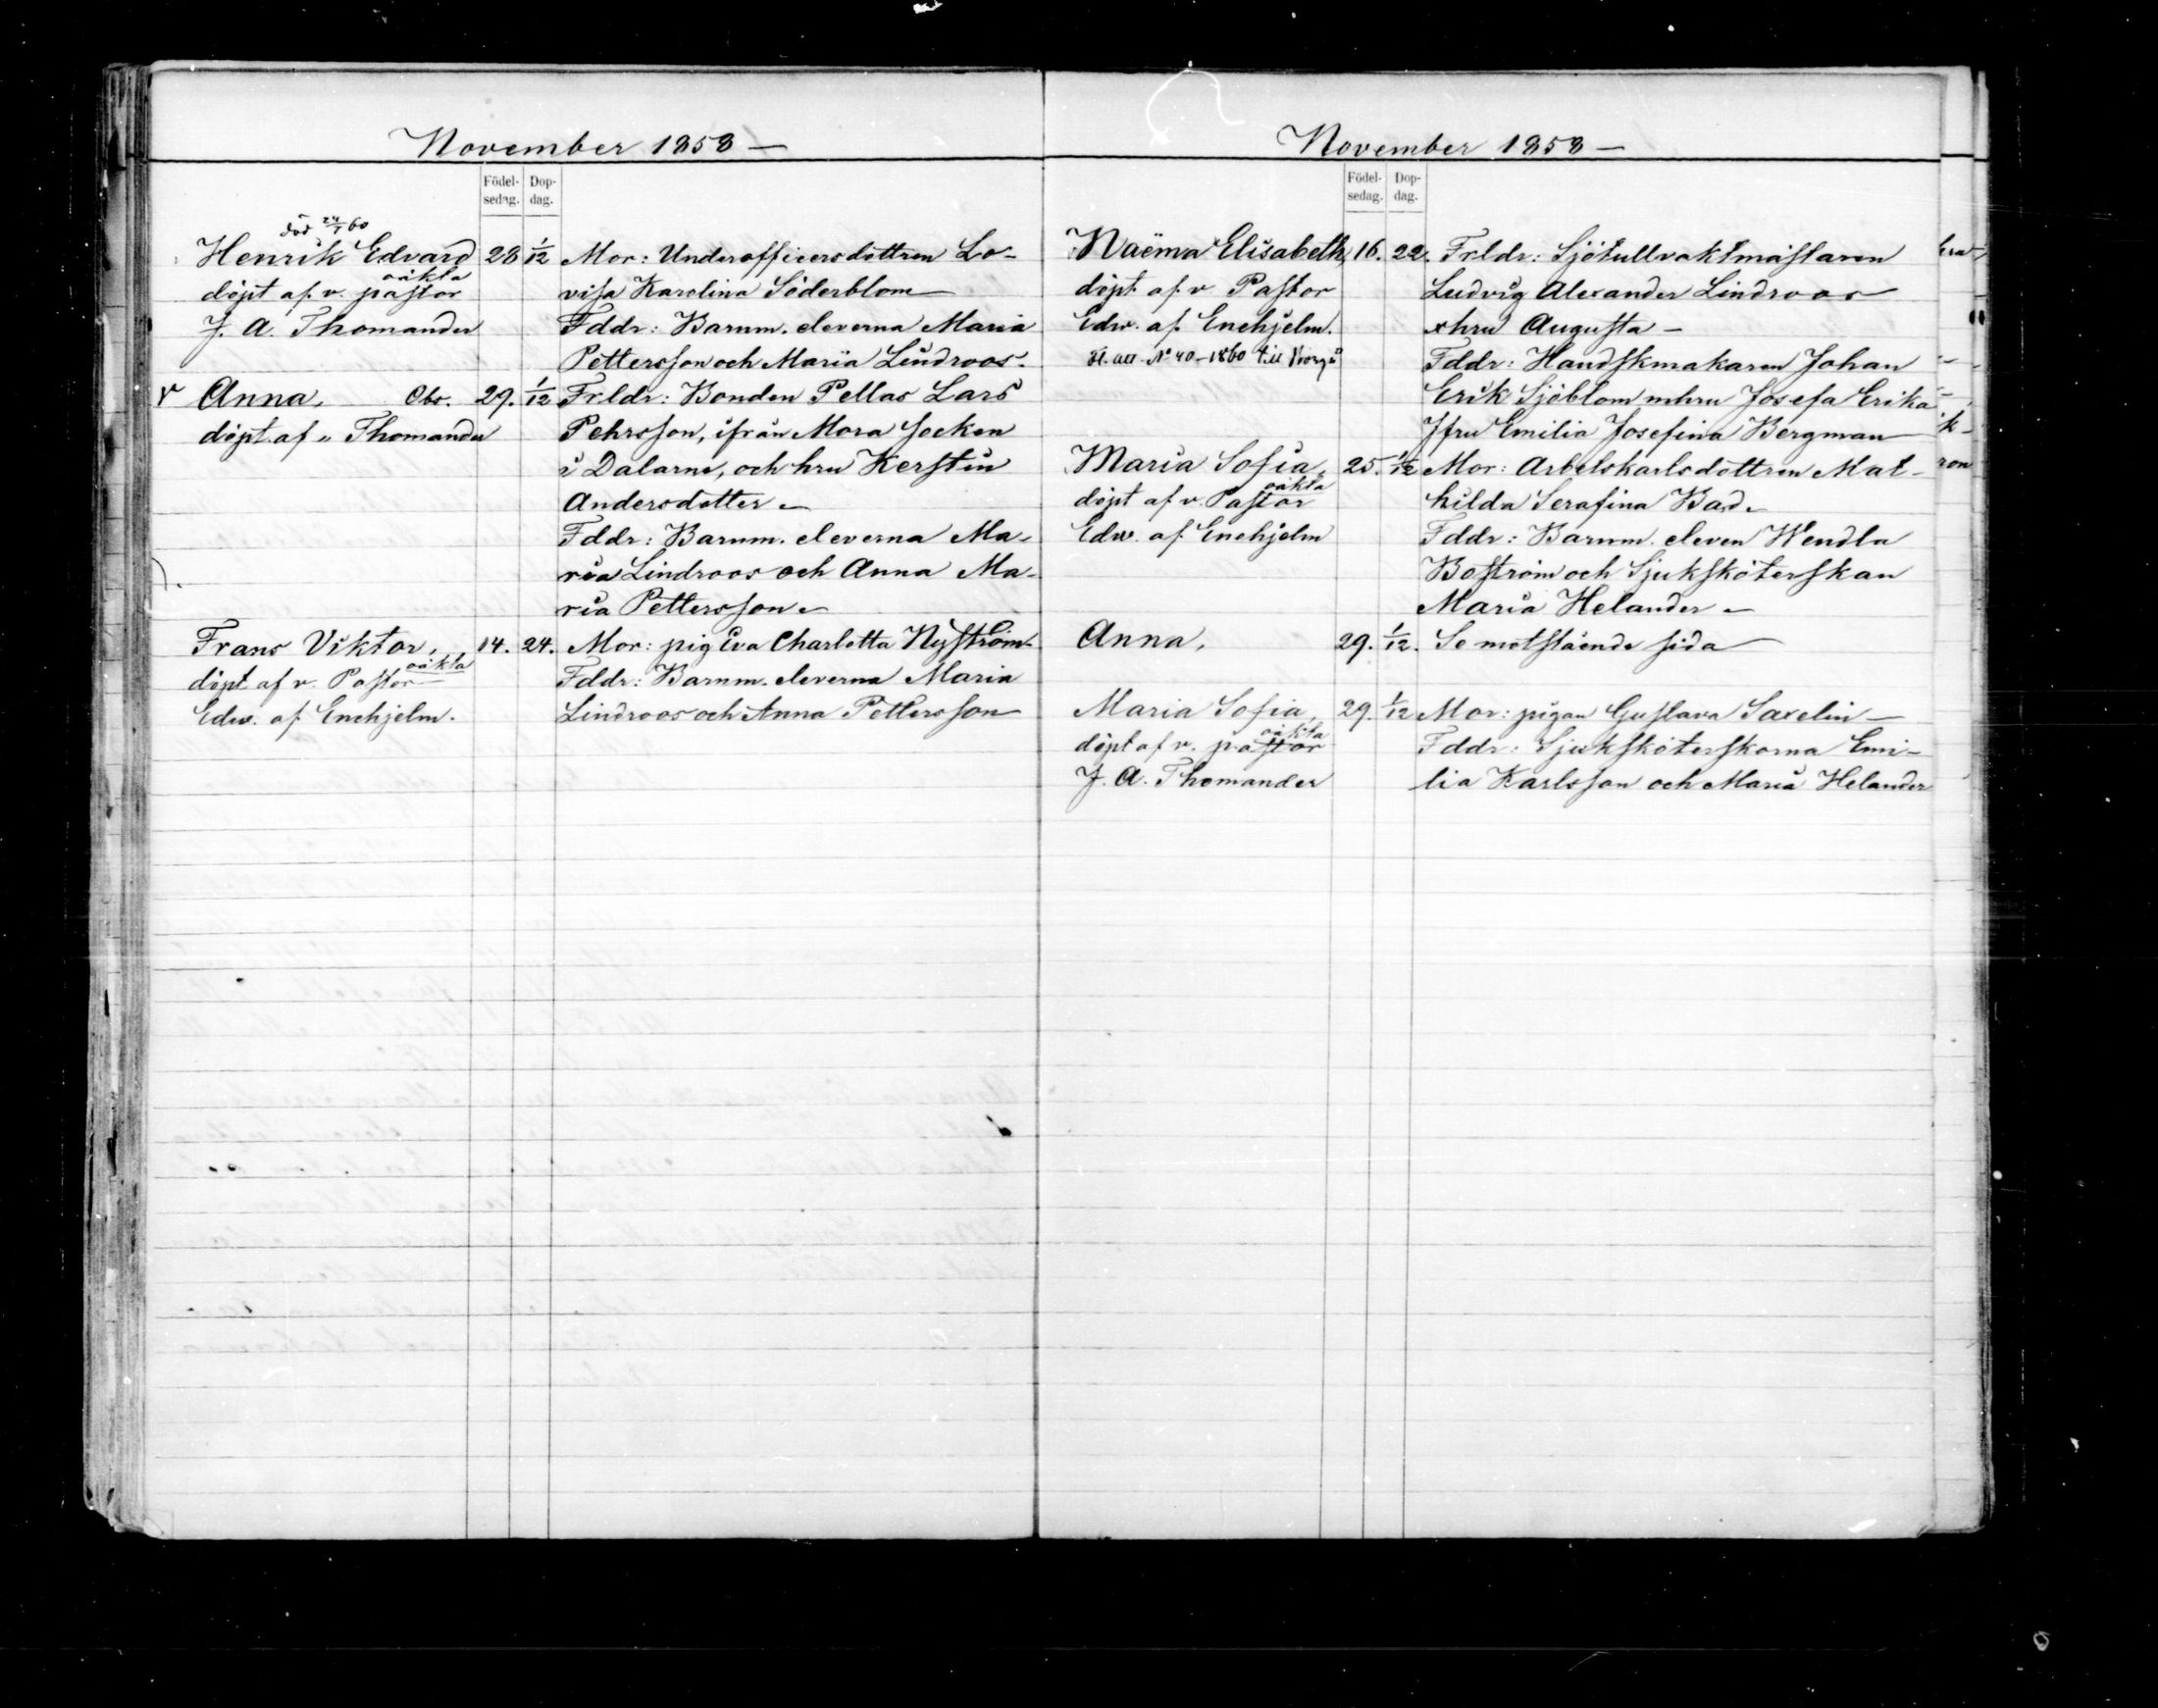 November 1858 —
Födel-
sedag.
Dop-
dag.
död 24/1 60
Henrik Edvard 28 1/12 Mor: Underofficersdottren Lo-
oäkta
döpt af v. pastor visa Karolina Söderblom —
J. A. Thomander Fddr: Barnm. eleverna Maria
Pettersson och Maria Lindroos.
v Anna, Obs. 29. 1/12 Frldr: Bonden Pellas Lars
döpt af „ Thomander Pehrsson, ifrån Mora socken
i Dalarne, och hru Kerstin
Andersdotter —
Fddr: Barnm. eleverna Ma-
ria Lindroos och Anna Ma-
ria Pettersson —
Frans Viktor, 14. 24. Mor: pig Eva Charlotta Nyström
oäkta
döpt af v. Pastor Fddr: Barnm. eleverna Maria
Edw. af Enehjelm. Lindroos och Anna Pettersson
November 1858 —
Födel-
sedag.
Dop-
dag.
Naëma Elisabeth, 16. 22. Frldr: Sjötullvaktmästaren
döpt af v Pastor Ludvig Alexander Lindroos
Edw. af Enehjelm. o hru Augusta —
Fl. att. No 40-1860 till Fddr: Handskmakaren Johan
Erik Sjöblom mhru Josefa Erika
Jfru Emilia Josefina Bergman
Maria Sofia, 25. 1/12 Mor: Arbetskarlsdottren Mat-
oäkta
döpt af v. Pastor hilda Serafina Bad.
Edw. af Enehjelm Fddr: Barnm. eleven Wendla
Boström och Sjuksköterskan
Maria Helander —
Anna, 29. 1/12. Se motstående sida —
Maria Sofia, 29. 1/12 Mor: pigan Gustava Saxelin —
oäkta
döpt af v. pastor Fddr: Sjuksköterskorna Emi-
J. A. Thomander lia Karlsson och Maria Helander